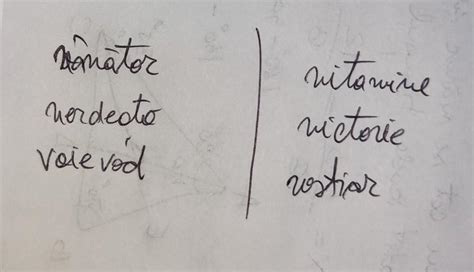 vânător
verdeață
voievod
vitamine
victorie
vestiar